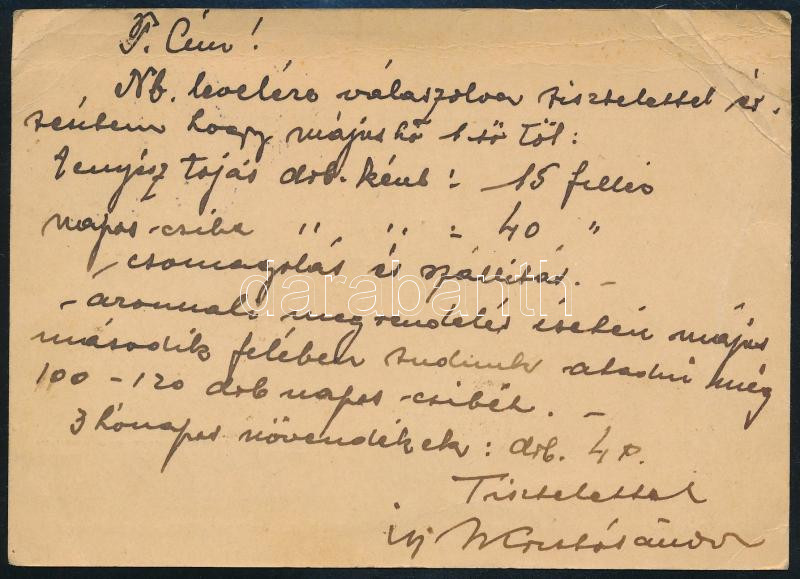 T. Cím!
Nb. levelére válaszolva tisztelettel ér-
tesítem hogy május hó 1 sö től:
tenyész tojás drb.-ként: 15 fillér
napos-csibe " " : 40 "
- csomagolás és szállítás. -
- azonnali megrendelés esetén május
második felében tudunk átadni még
100 - 120 drb napos-csibét. -
3 hónapos növendékek: drb. 4 P.
Tisztelettel
ifj
darabanth